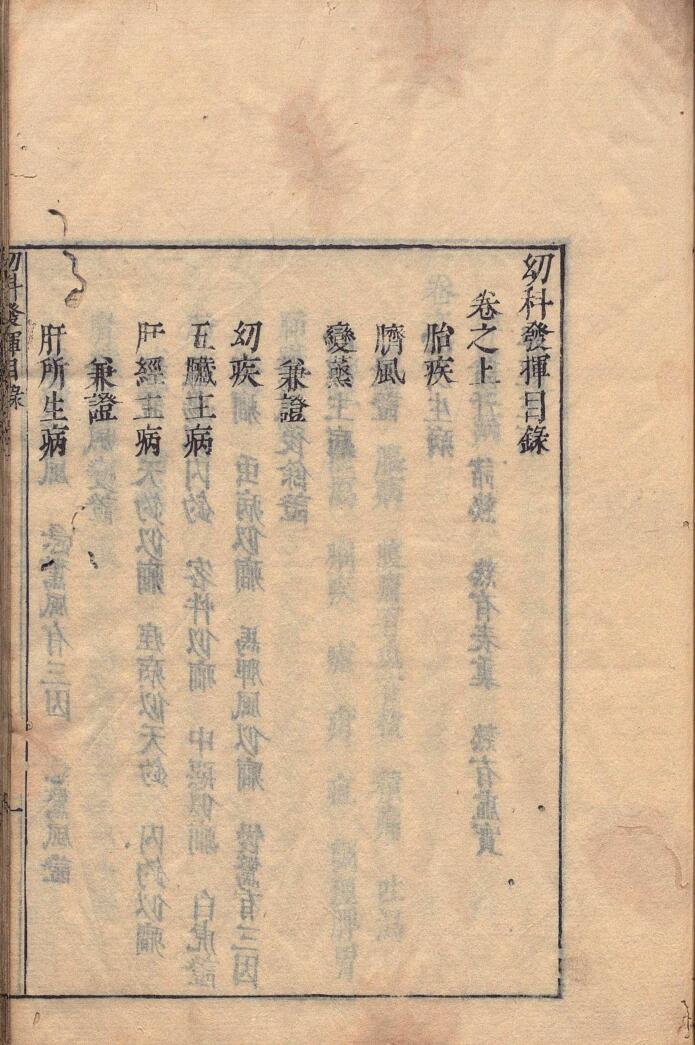 幼科發揮目錄
卷之上
胎疾
臍風
變蒸
兼證
幼疾
五臟主病
肝經主病
兼證
肝所生病
幼科發揮目錄
一